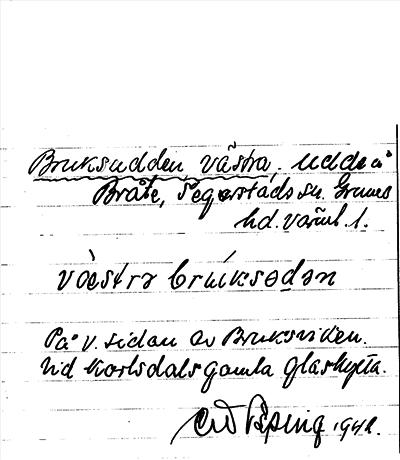 Bruksudden, västra. Udde å
Bråte, Segerstads sn. Grums
hd. Värml. l.
västra brúksədən
På V. sidan av Bruksviken.
Vid Karlsdals gamla glashytta.
1942.